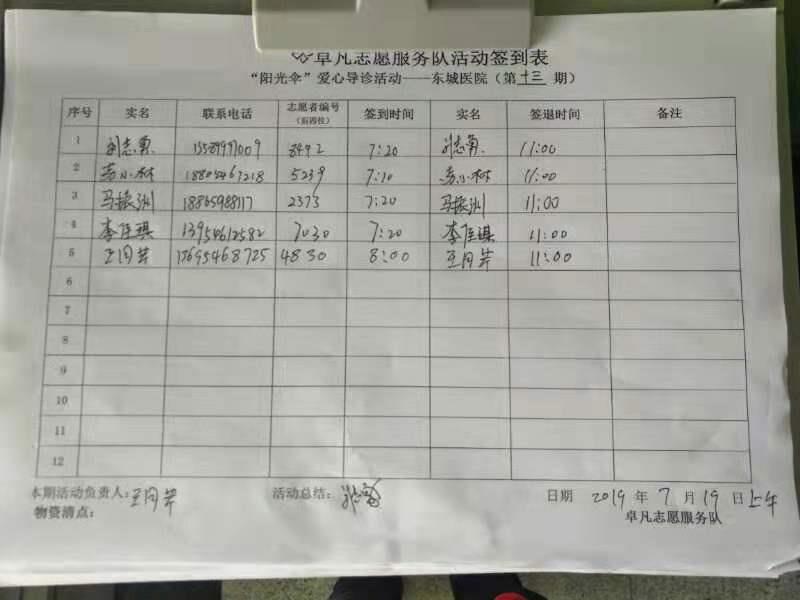 卓凡志愿服务队活动签到表
“阳光伞”爱心导诊活动——东城医院（第十三期）
序号 实名 联系电话 志愿者编号（后四位） 签到时间 实名 签退时间 备注
1 刘志勇 13589971009 8492 7:20 刘志勇 11:00
2 苏小林 18805467218 5239 7:10 苏小林 11:00
3 马振洲 18865988117 2373 7:20 马振洲 11:00
4 李佳琪 13954612582 7030 7:20 李佳琪 11:00
5 王同芹 13695468725 4830 8:00 王同芹 11:00
6
7
8
9
10
11
12
本期活动负责人：王同芹 活动总结： 日期 2019年7月19日上午
物资清点： 卓凡志愿服务队